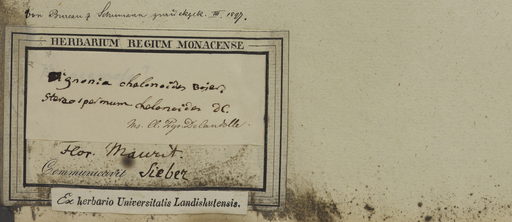 Von Bureau & Schumann zurückgek. III. 1897.
HERBARIUM REGIUM MONACENSE
Bignonia chelonoides Bojer,
Stereospermum chelonoides DC.
Ms. Cl. Prof. De Candolle.
Flor. Maurit.
Communicavit Sieber
Ex herbario Universitatis Landishutensis.